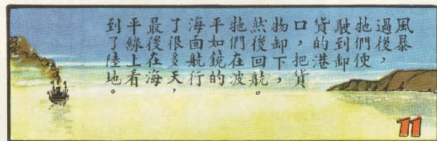 風暴
過後，
牠們使
駛到卸
貨的港
口，把貨
物卸下，
然後回龍。
牠們在波
平如鏡的
海面航行
了很多天，
最後在海
平線上看
到了陸地。
11